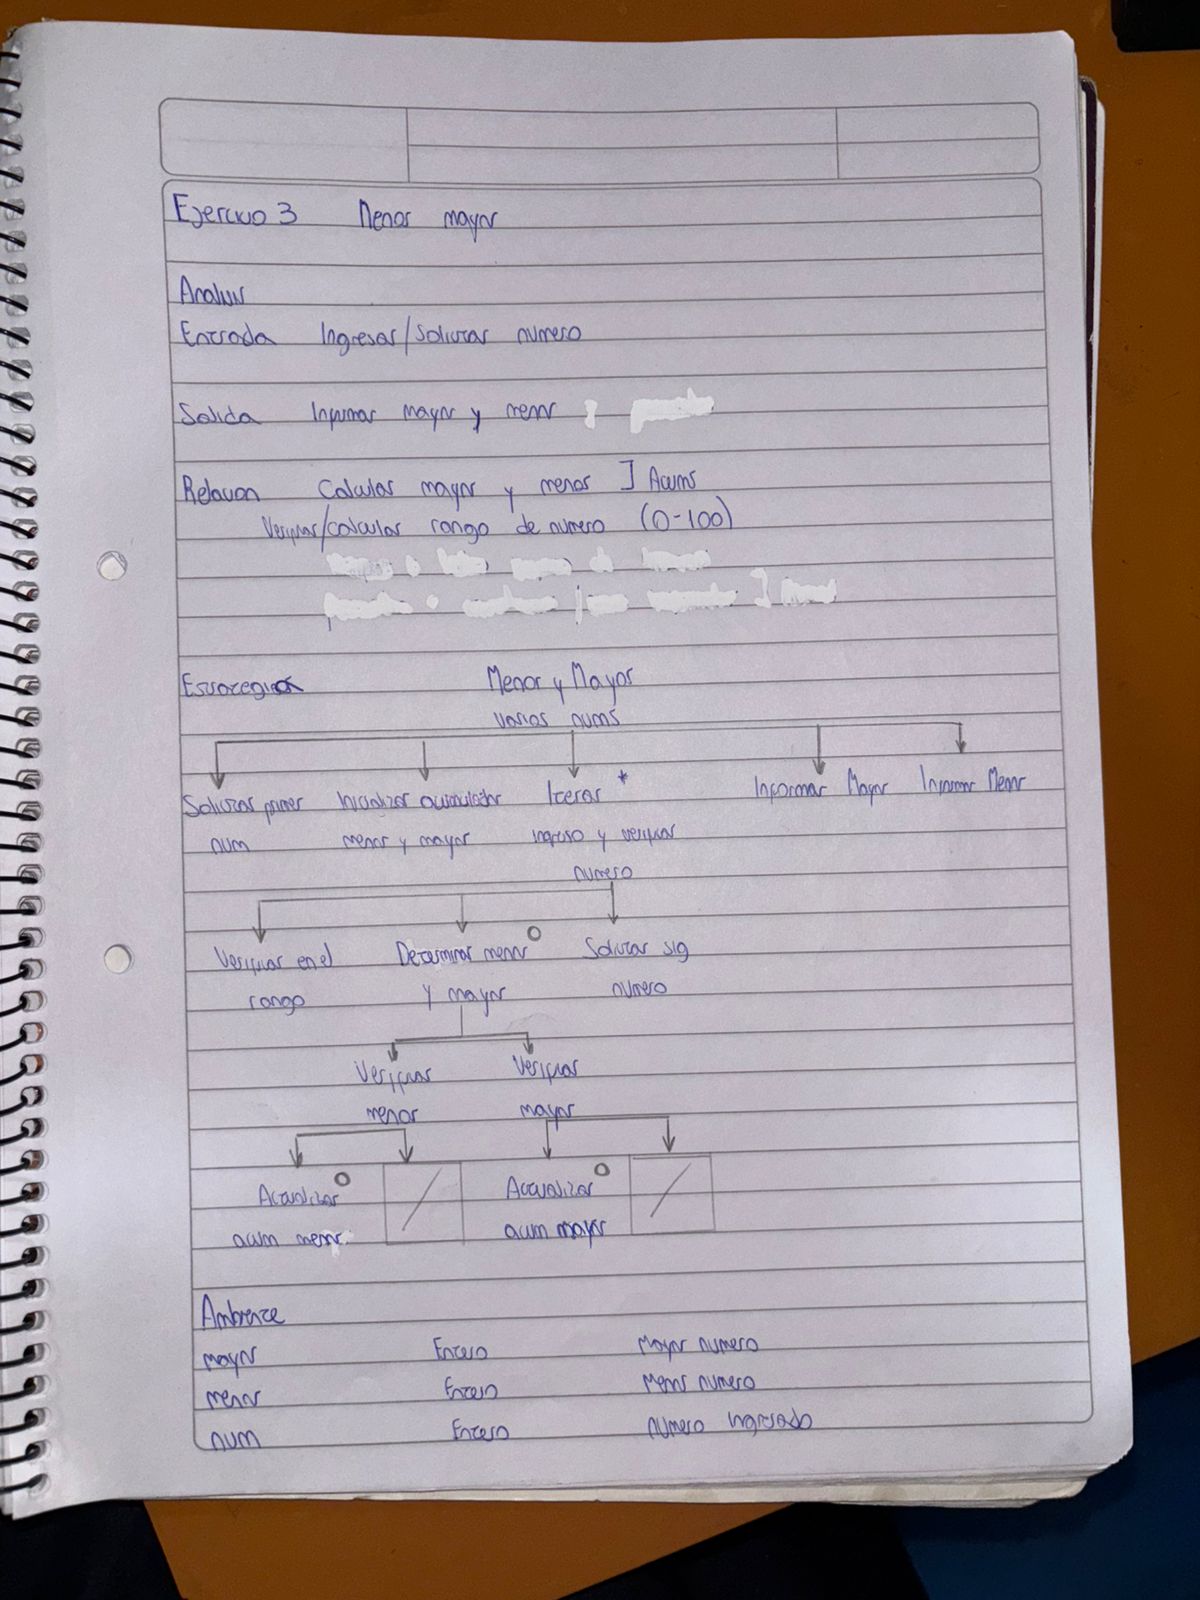 Ejercicio 3 Menor mayor
Analisis
Entrada Ingresar/Solicitar numero
Salida Informar mayor y menor
Relacion Calcular mayor y menor ] Acums
Verificar/calcular rango de numero (0-100)
Estrategia Menor y Mayor
varios nums
Solicitar primer Inicializar acumulador Iterar * Informar Mayor Informar Menor
num menor y mayor ingreso y verificar
numero
Verificar en el Determinar menor o Solicitar sig
rango y mayor numero
Verificar Verificar
menor mayor
Actualizar o / Actualizar o /
acum menor acum mayor
Ambiente
mayor Entero Mayor numero
menor Entero Menor numero
num Entero numero ingresado